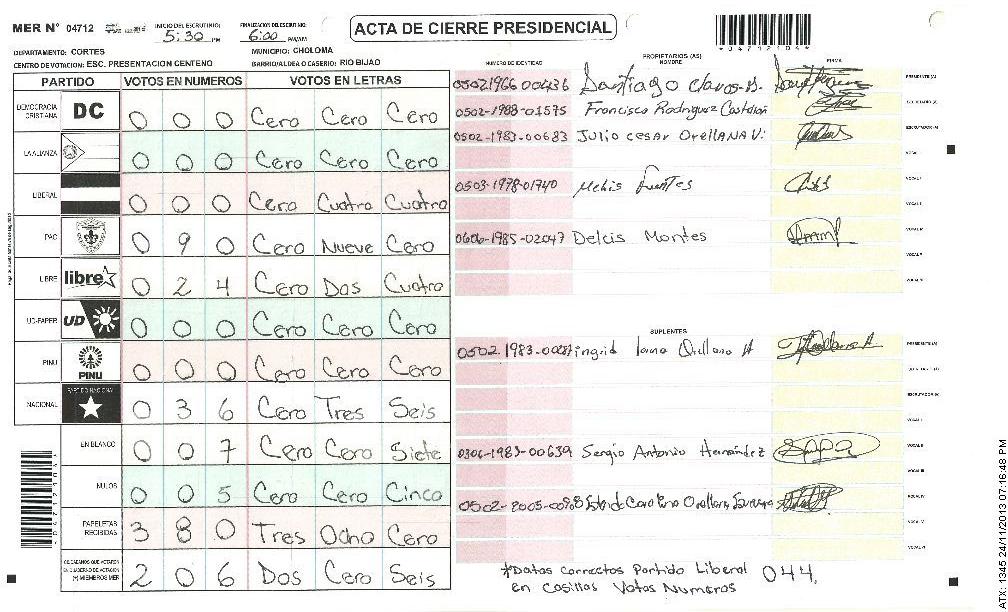 MER N° 04712
INICIO DEL ESCRUTINIO: 5:30 PM
FINALIZACION DEL ESCRUTINIO: 6:00 PM/AM
ACTA DE CIERRE PRESIDENCIAL
*04712104*
DEPARTAMENTO: CORTES
MUNICIPIO: CHOLOMA
CENTRO DE VOTACION: ESC. PRESENTACION CENTENO
BARRIO/ALDEA O CASERIO: RIO BIJAO
PARTIDO VOTOS EN NUMEROS VOTOS EN LETRAS
DEMOCRACIA CRISTIANA DC 0 0 0 Cero Cero Cero
LA ALIANZA 0 0 0 Cero Cero Cero
LIBERAL 0 0 0 Cero Cuatro Cuatro
PAC 0 9 0 Cero Nueve Cero
LIBRE libre 0 2 4 Cero Dos Cuatro
UD-FAPER UD 0 0 0 Cero Cero Cero
PINU PINU 0 0 0 Cero Cero Cero
NACIONAL PARTIDO NACIONAL 0 3 6 Cero Tres Seis
EN BLANCO 0 0 7 Cero Cero Siete
NULOS 0 0 5 Cero Cero Cinco
PAPELETAS RECIBIDAS 3 8 0 Tres Ocho Cero
CIUDADANOS QUE VOTARON EN CUADERNO DE VOTACION (+) MIEMBROS MER 2 0 6 Dos Cero Seis
PROPIETARIOS (AS)
NUMERO DE IDENTIDAD NOMBRE FIRMA
0502 1966 00436 Santiago Claros PRESIDENTE(A)
0502-1988-01575 Francisco Rodriguez Castellon SECRETARIO(A)
0502-1983-00683 Julio Cesar Orellana V. ESCRUTADOR(A)
VOCAL I
0503-1978-01740 Melis Fuentes VOCAL II
VOCAL III
0606-1985-02047 Delcis Montes VOCAL IV
VOCAL V
VOCAL VI
SUPLENTES
0502-1983- ingrid Orellana A PRESIDENTE(A)
SECRETARIO(A)
ESCRUTADOR(A)
VOCAL I
0306-1983-00639 Sergio Antonio Hernández VOCAL II
VOCAL III
0502-2005- Carolina Orellana VOCAL IV
VOCAL V
VOCAL VI
*Datos correctos Partido Liberal 044,
en Casillas Votos Numeros
ATX: 1345 24/11/2013 07:16:48 PM